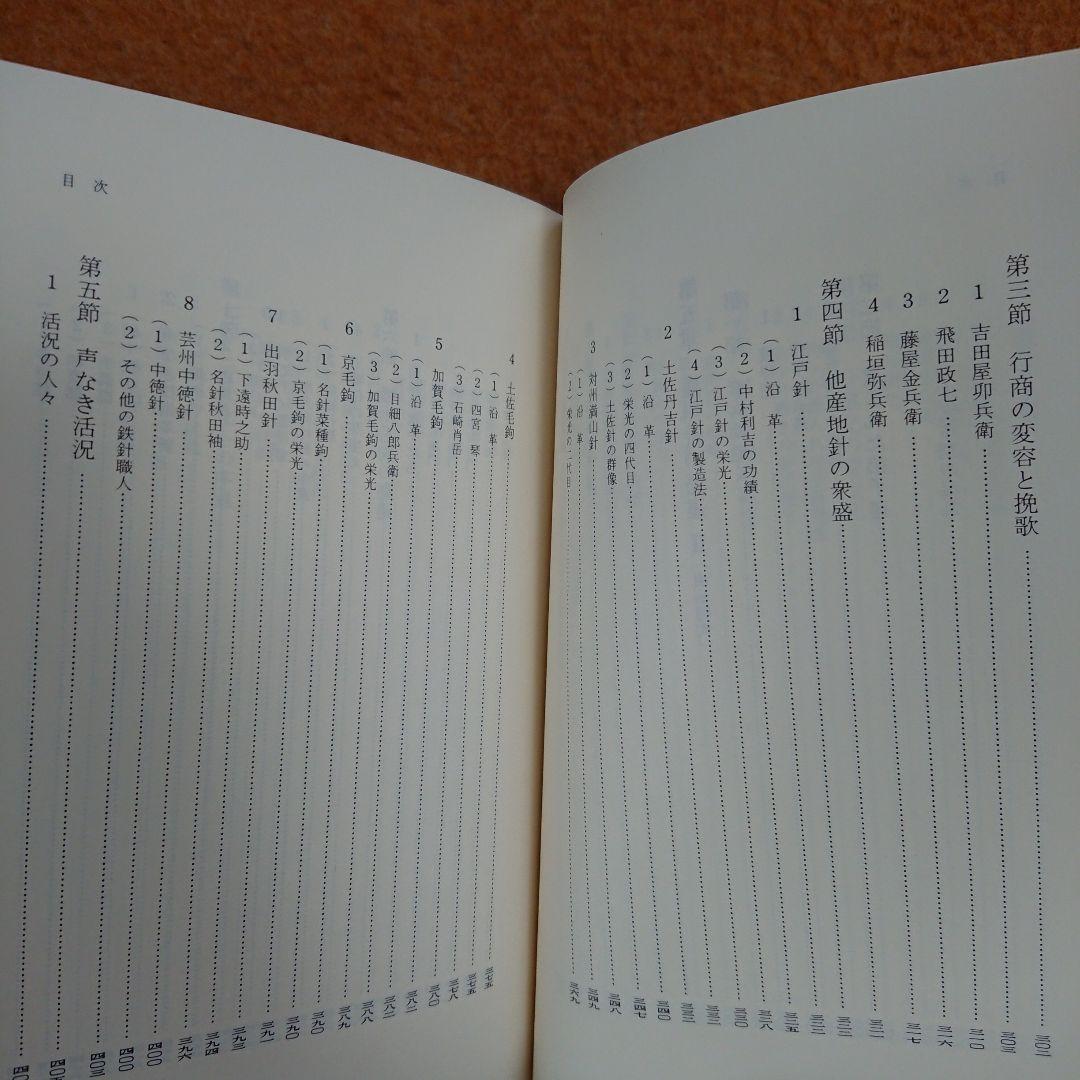 第三節 行商の変容と挽歌……三〇二
1 吉田屋卯兵衛……三〇三
2 飛田政七……三一〇
3 藤屋金兵衛……三一六
4 稲垣弥兵衛……三一七
第四節 他産地針の衆盛……三二一
1 江戸針……三二二
(1)沿 革……三二二
(2)中村利吉の功績……三二五
(3)江戸針の栄光……三二八
(4)江戸針の製造法……三三〇
2 土佐丹吉針……三三二
(1)沿 革……三三二
(2)栄光の四代目……三四〇
(3)土佐針の群像……三四七
3 対州満山針……三四八
(1)沿 革……三四九
(2)栄光の二代目……三六九
目 次
4 土佐毛鉤……三七五
(1)沿 革……三七五
(2)四宮 琴……三七八
(3)石崎肖岳……三八〇
5 加賀毛鉤……三八二
(1)沿 革……三八二
(2)目細八郎兵衛……三八八
(3)加賀毛鉤の栄光……三八九
6 京毛鉤……三九〇
(1)名針菜種鉤……三九〇
(2)京毛鉤の栄光……三九一
7 出羽秋田針……三九三
(1)下遠時之助……三九四
(2)名針秋田袖……三九六
8 芸州中徳針……四〇〇
(1)中徳針……四〇〇
(2)その他の鉄針職人……四〇三
第五節 声なき活況……四〇五
1 活況の人々……四〇